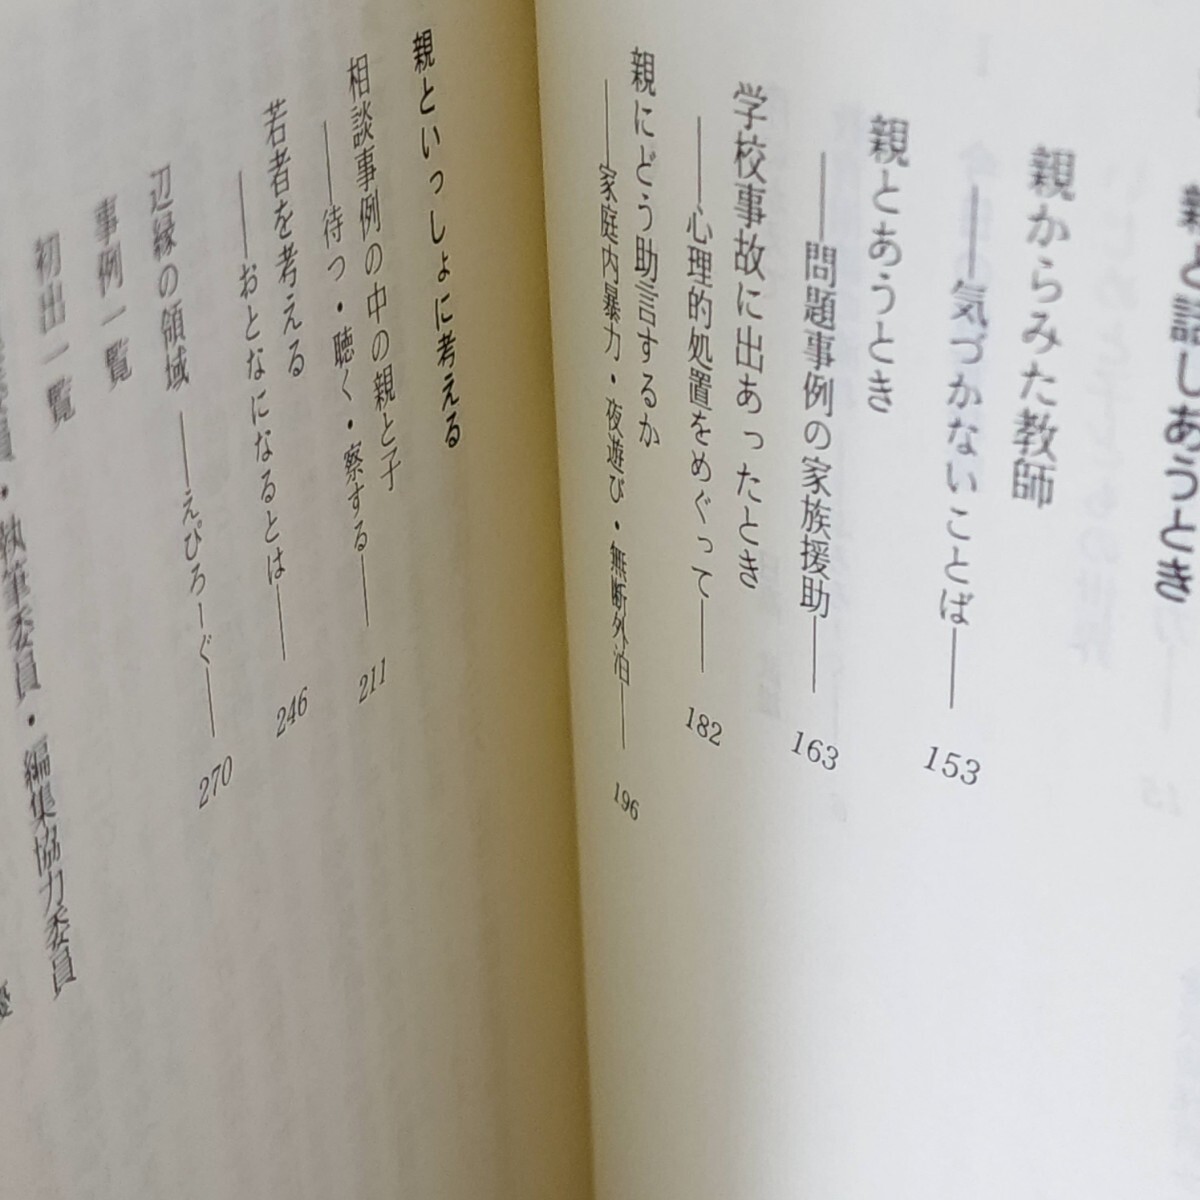 親と話しあうとき
親からみた教師
――気づかないことば―― 153
親とあうとき
――問題事例の家族援助―― 163
学校事故に出あったとき
――心理的処置をめぐって―― 182
親にどう助言するか
――家庭内暴力・夜遊び・無断外泊―― 196
親といっしょに考える
相談事例の中の親と子
――待つ・聴く・察する―― 211
若者を考える
――おとなになるとは―― 246
辺縁の領域 ――えぴろーぐ―― 270
事例一覧
初出一覧
委員・執筆委員・編集協力委員